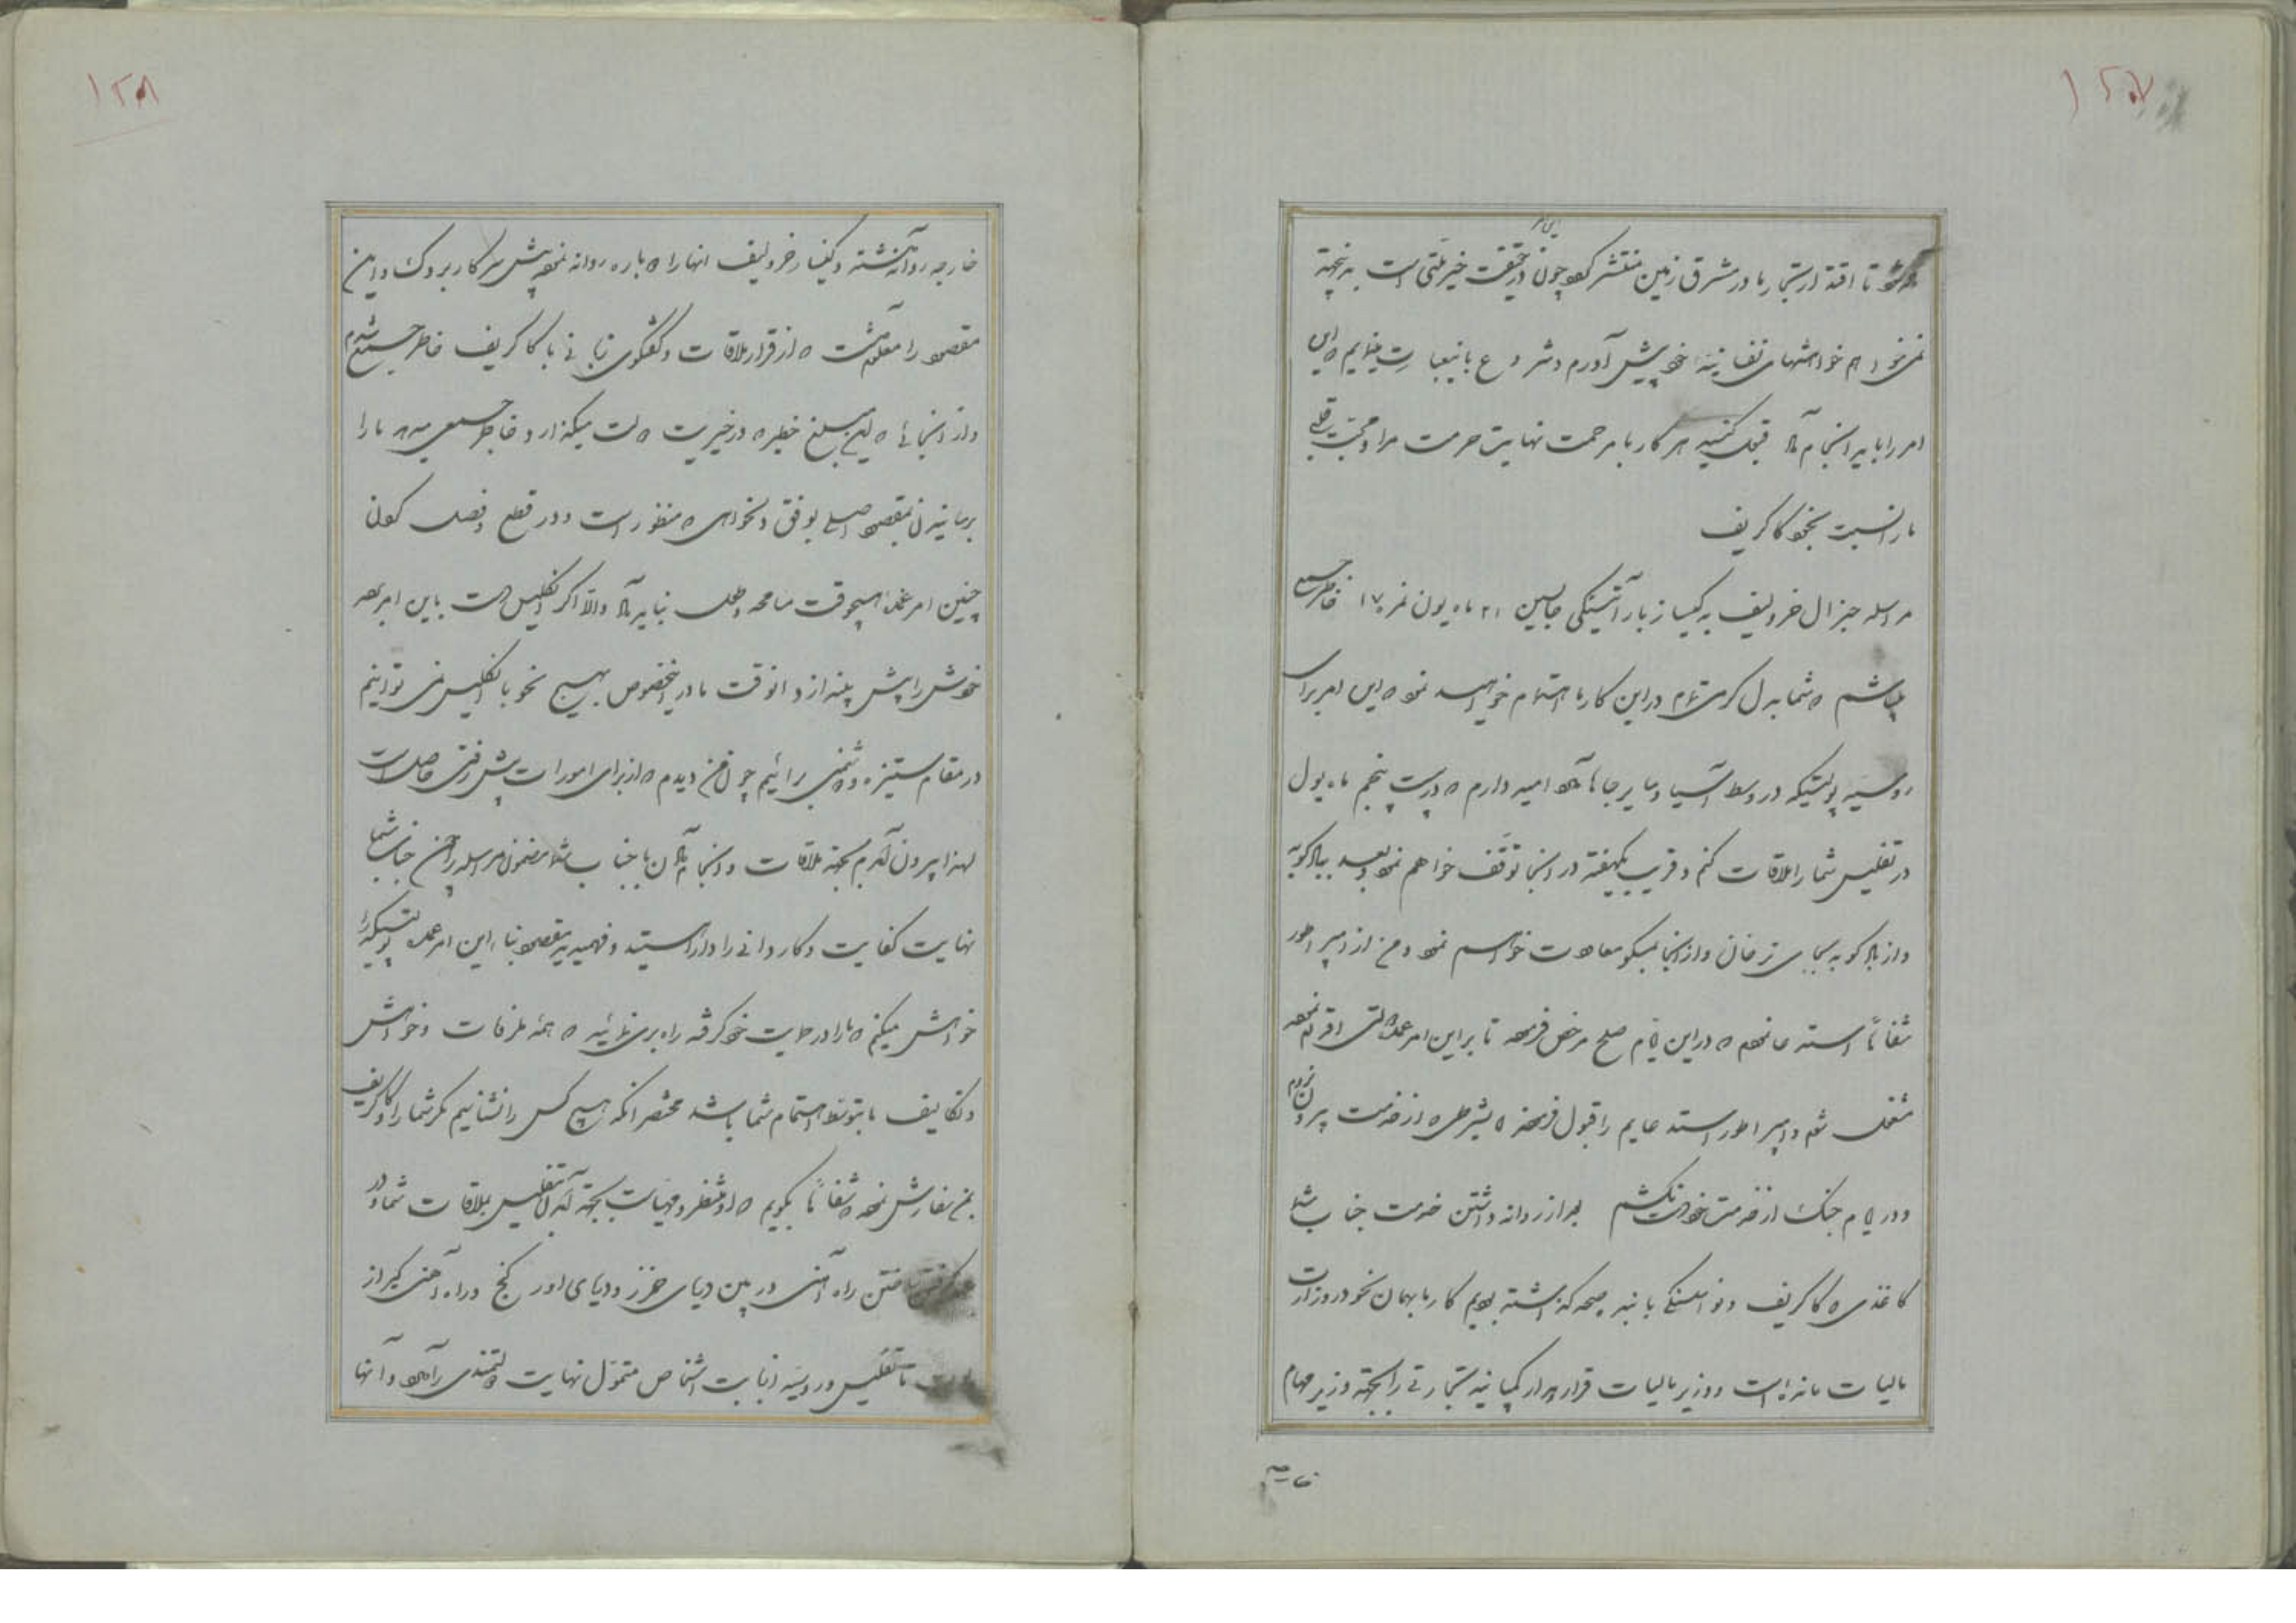 ۱۲۷
تا اقتدار تجار ما در مشرق زمین منتشر گردد چون در حقیقت خیر ملتی است بدینجهة
این امر
نمی‌خواهم خواهشهای نفسانیه خود پیش آورم و شروع باینعبارت مینمایم که این
امر را باید انجام داد قبول کنید سرکار با مرحمت نهایت حرمت مرا و محبت قلبی
ما را نسبت بخود کاکاریف
مراسله جنرال خرولیف به کیساز بارآتنسکی جانشین ۲۱ ماه یون نمره ۱۷ خاطر جمع
میباشم که شما بدل گرمی تمام در این کار ما اهتمام خواهید نمود که این امر برای
روسیه پولتیکه در وسط آسیا و سایر جاها دارد امید دارم که در بیست پنجم ماه یول
در تفلیس شما را ملاقات کنم و قریب یکهفته در آنجا توقف خواهم نمود و بعد ببادکوبه
و از بادکوبه بحاجی ترخان و از آنجا بمسکو معاودت خواهم نمود و من از امپراطور
شفاهاً استدعا نمودم که در این ایام صلح مرخص فرموده تا بر این امر عمده ملتی اقدام نموده
مشغول شوم و امپراطور استدعایم را قبول فرمودند بشرطی که از خدمت بیرون نروم
و در ایام جنگ از خدمت خود دست نکشم بعد از روانه داشتن خدمت جناب شما
کاغذی که کاکاریف و نواسلسکی بانبه صحه گذاشته بودیم کار ما بهمان نحو در وزارت
مالیات مانده است و وزیر مالیات قرارداد کمپانیه تجارتی را بجهة وزیر مهام
خارجه
۱۲۸
خارجه روانه داشته و کیساز خرولیف انها را دوباره روانه نموده پیش سرکار بردوک و این
مقصود را معلوم داشت که از قرار ملاقات و گفتگوی زبانی با کاکاریف خاطر جمع شدم
و از آنجائی که این مبلغ خطیر که در خیریت دولت میگذارد و خاطر جمعی میدهد ما را
برسانیدن بمقصود اصلی بوفق دلخواهی که منظور است و در قطع و فصل کردن
چنین امر عمده هیچوقت مسامحه و طول نباید داد و الا اگر انگلیس دست باین امر بعد
خودش را پیش بیندازد انوقت ما در اینخصوص بهیچ نحو با انگلیس نمی توانیم
در مقام ستیزه و دشمنی برائیم چون من دیدم که از برای امورات پیش رفتی حاصل است
لهذا بیرون آمدم بجهة ملاقات و انجام دادن با جناب شما مضمون مراسله را چون جناب شما
نهایت کفایت و کاردانی را دارا هستید و فهمیده‌اید مقصود بنای این امر عمده پولتیکه را
خواهش میکنم که ما را در حمایت خود گرفته راه بری نمائید که همه ملزفات و خواهش
و تکالیف ما بتوسط اهتمام شما باشد مختصر انکه هیچ کس را نشناسیم مگر شما را و کاکاریف
بمن سفارش نموده که شفاهاً بگویم که او منتظر و مهیاست بجهة آمدن تفلیس بملاقات شما و در
ساختن راه آهنی در بین دریای خزر و دریای اورکنج و راه آهنی دیگر از
تا تفلیس و روسیه از بابت اشخاص متمول نهایت دولتمندی را دارد و آنها